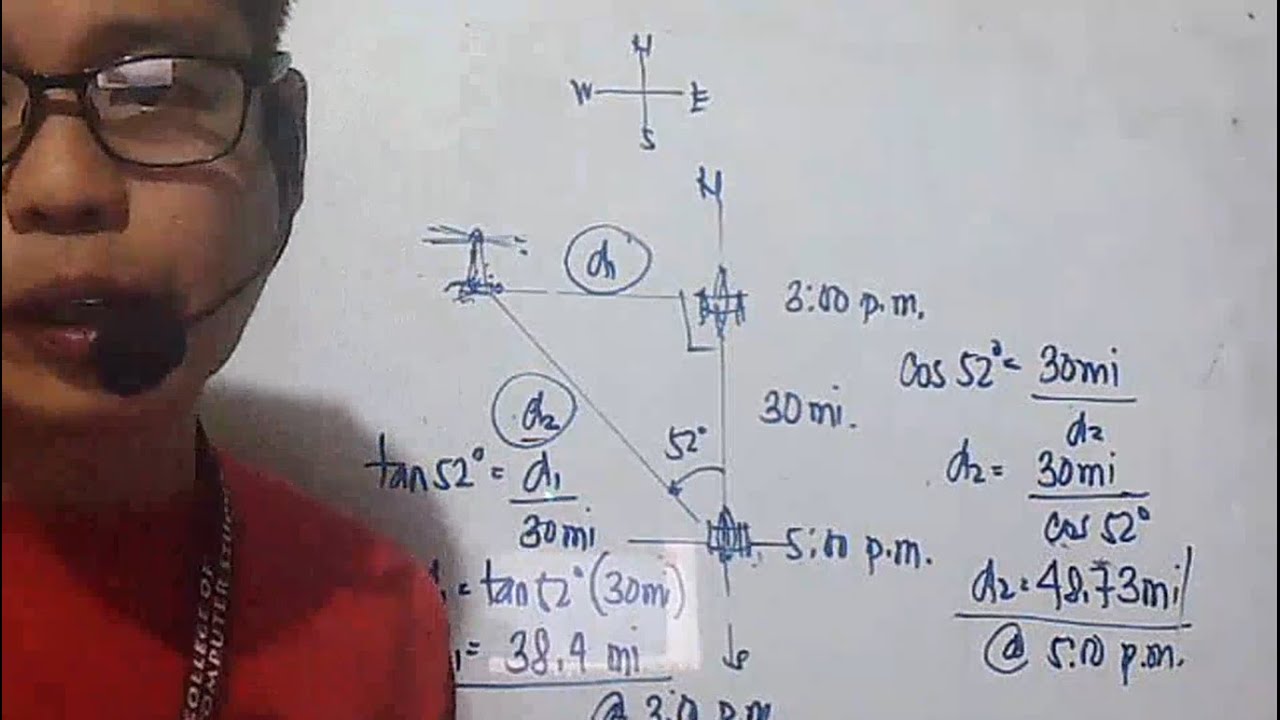 N
W E
S
N
d1
3:00 p.m.
cos 52° = 30mi
d2
30 mi.
d2
52°
tan 52° = d1
30mi
d2 = 30mi
cos 52°
5:00 p.m.
= tan 52° (30mi)
d2 = 48.73mi
= 38.4 mi
@ 5:00 p.m.
@ 3:00 p.m
COLLEGE OF
COMPUTER